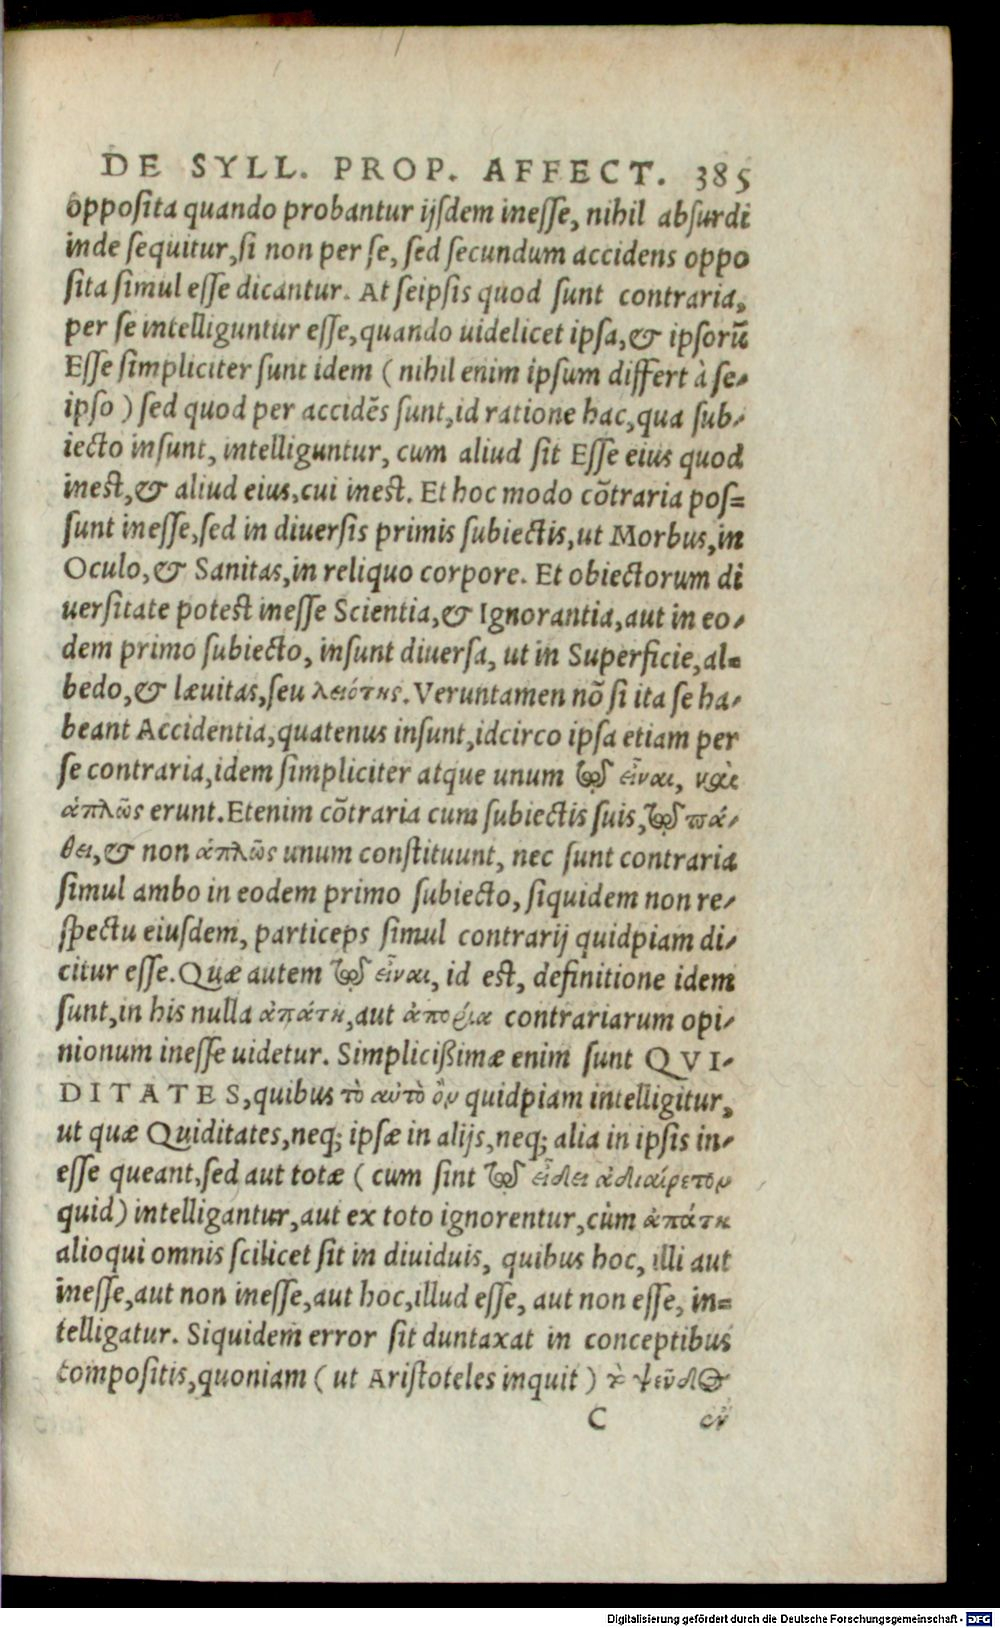 DE SYLL. PROP. AFFECT. 385
opposita quando probantur ijsdem inesse, nihil absurdi
inde sequitur, si non per se, sed secundum accidens oppo
sita simul esse dicantur. At seipsis quod sunt contraria,
per se intelliguntur esse, quando uidelicet ipsa, & ipsorũ
Esse simpliciter sunt idem ( nihil enim ipsum differt à se-
ipso ) sed quod per accidẽs sunt, id ratione hac, qua sub-
iecto insunt, intelliguntur, cum aliud sit Esse eius quod
inest, & aliud eius, cui inest. Et hoc modo cõtraria pos=
sunt inesse, sed in diuersis primis subiectis, ut Morbus, in
Oculo, & Sanitas, in reliquo corpore. Et obiectorum di
uersitate potest inesse Scientia, & Ignorantia, aut in eo-
dem primo subiecto, insunt diuersa, ut in Superficie, al=
bedo, & læuitas, seu λειότης. Veruntamen nõ si ita se ha-
beant Accidentia, quatenus insunt, idcirco ipsa etiam per
se contraria, idem simpliciter atque unum τῷ εἶναι, καὶ
ἁπλῶς erunt. Etenim cõtraria cum subiectis suis, τῷ πά-
θει, & non ἁπλῶς unum constituunt, nec sunt contraria
simul ambo in eodem primo subiecto, siquidem non re-
spectu eiusdem, particeps simul contrarij quidpiam di-
citur esse. Quæ autem τῷ εἶναι, id est, definitione idem
sunt, in his nulla ἀπάτη, aut ἀπορία contrariarum opi-
nionum inesse uidetur. Simplicißimæ enim sunt QVI-
DITATES, quibus τὸ αὐτὸ ὂν quidpiam intelligitur,
ut quæ Quiditates, neq; ipsæ in alijs, neq; alia in ipsis in-
esse queant, sed aut totæ ( cum sint τῷ εἴδει ἀδιαίρετον
quid ) intelligantur, aut ex toto ignorentur, cùm ἀπάτη
alioqui omnis scilicet sit in diuiduis, quibus hoc, illi aut
inesse, aut non inesse, aut hoc, illud esse, aut non esse, in=
telligatur. Siquidem error sit duntaxat in conceptibus
compositis, quoniam ( ut Aristoteles inquit ) τὸ ψεῦδος
C ἐν
Digitalisierung gefördert durch die Deutsche Forschungsgemeinschaft - DFG